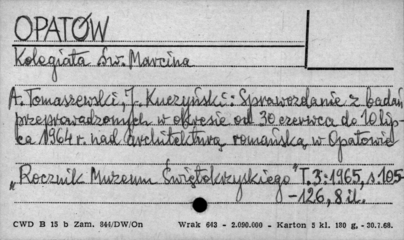 OPATÓW
Kolegiata Św. Marcina
A. Tomaszewski, J. Kuczyński: Sprawozdanie z badań
przeprowadzonych w okresie od 30 czerwca do 10 lip-
ca 1964 r. nad architekturą romańską w Opatowie
"Rocznik Muzeum Świętokrzyskiego" T. 3: 1965, s. 105-
-126, 8 il.
CWD B 15 b Zam. 844/DW/On Wrak 643 - 2.090.000 - Karton 3 kl. 180 g, - 30.7.68.